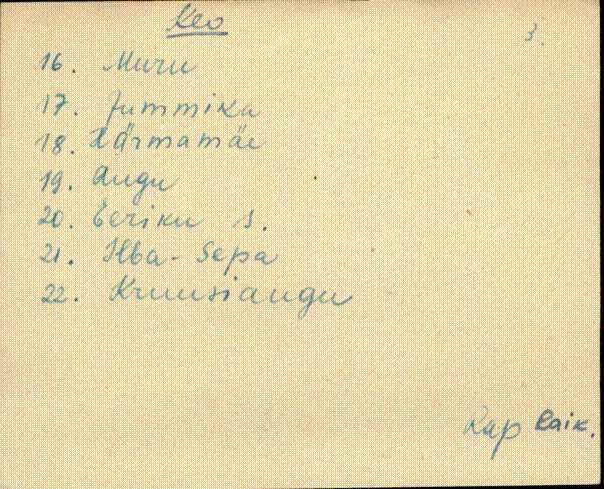 Keo
3.
16. Muru
17. Jummika
18. Härmamäe
19. Augu
20. Eeriku s.
21. Ilba-Sepa
22. Kruusiaugu
Rap Laik.